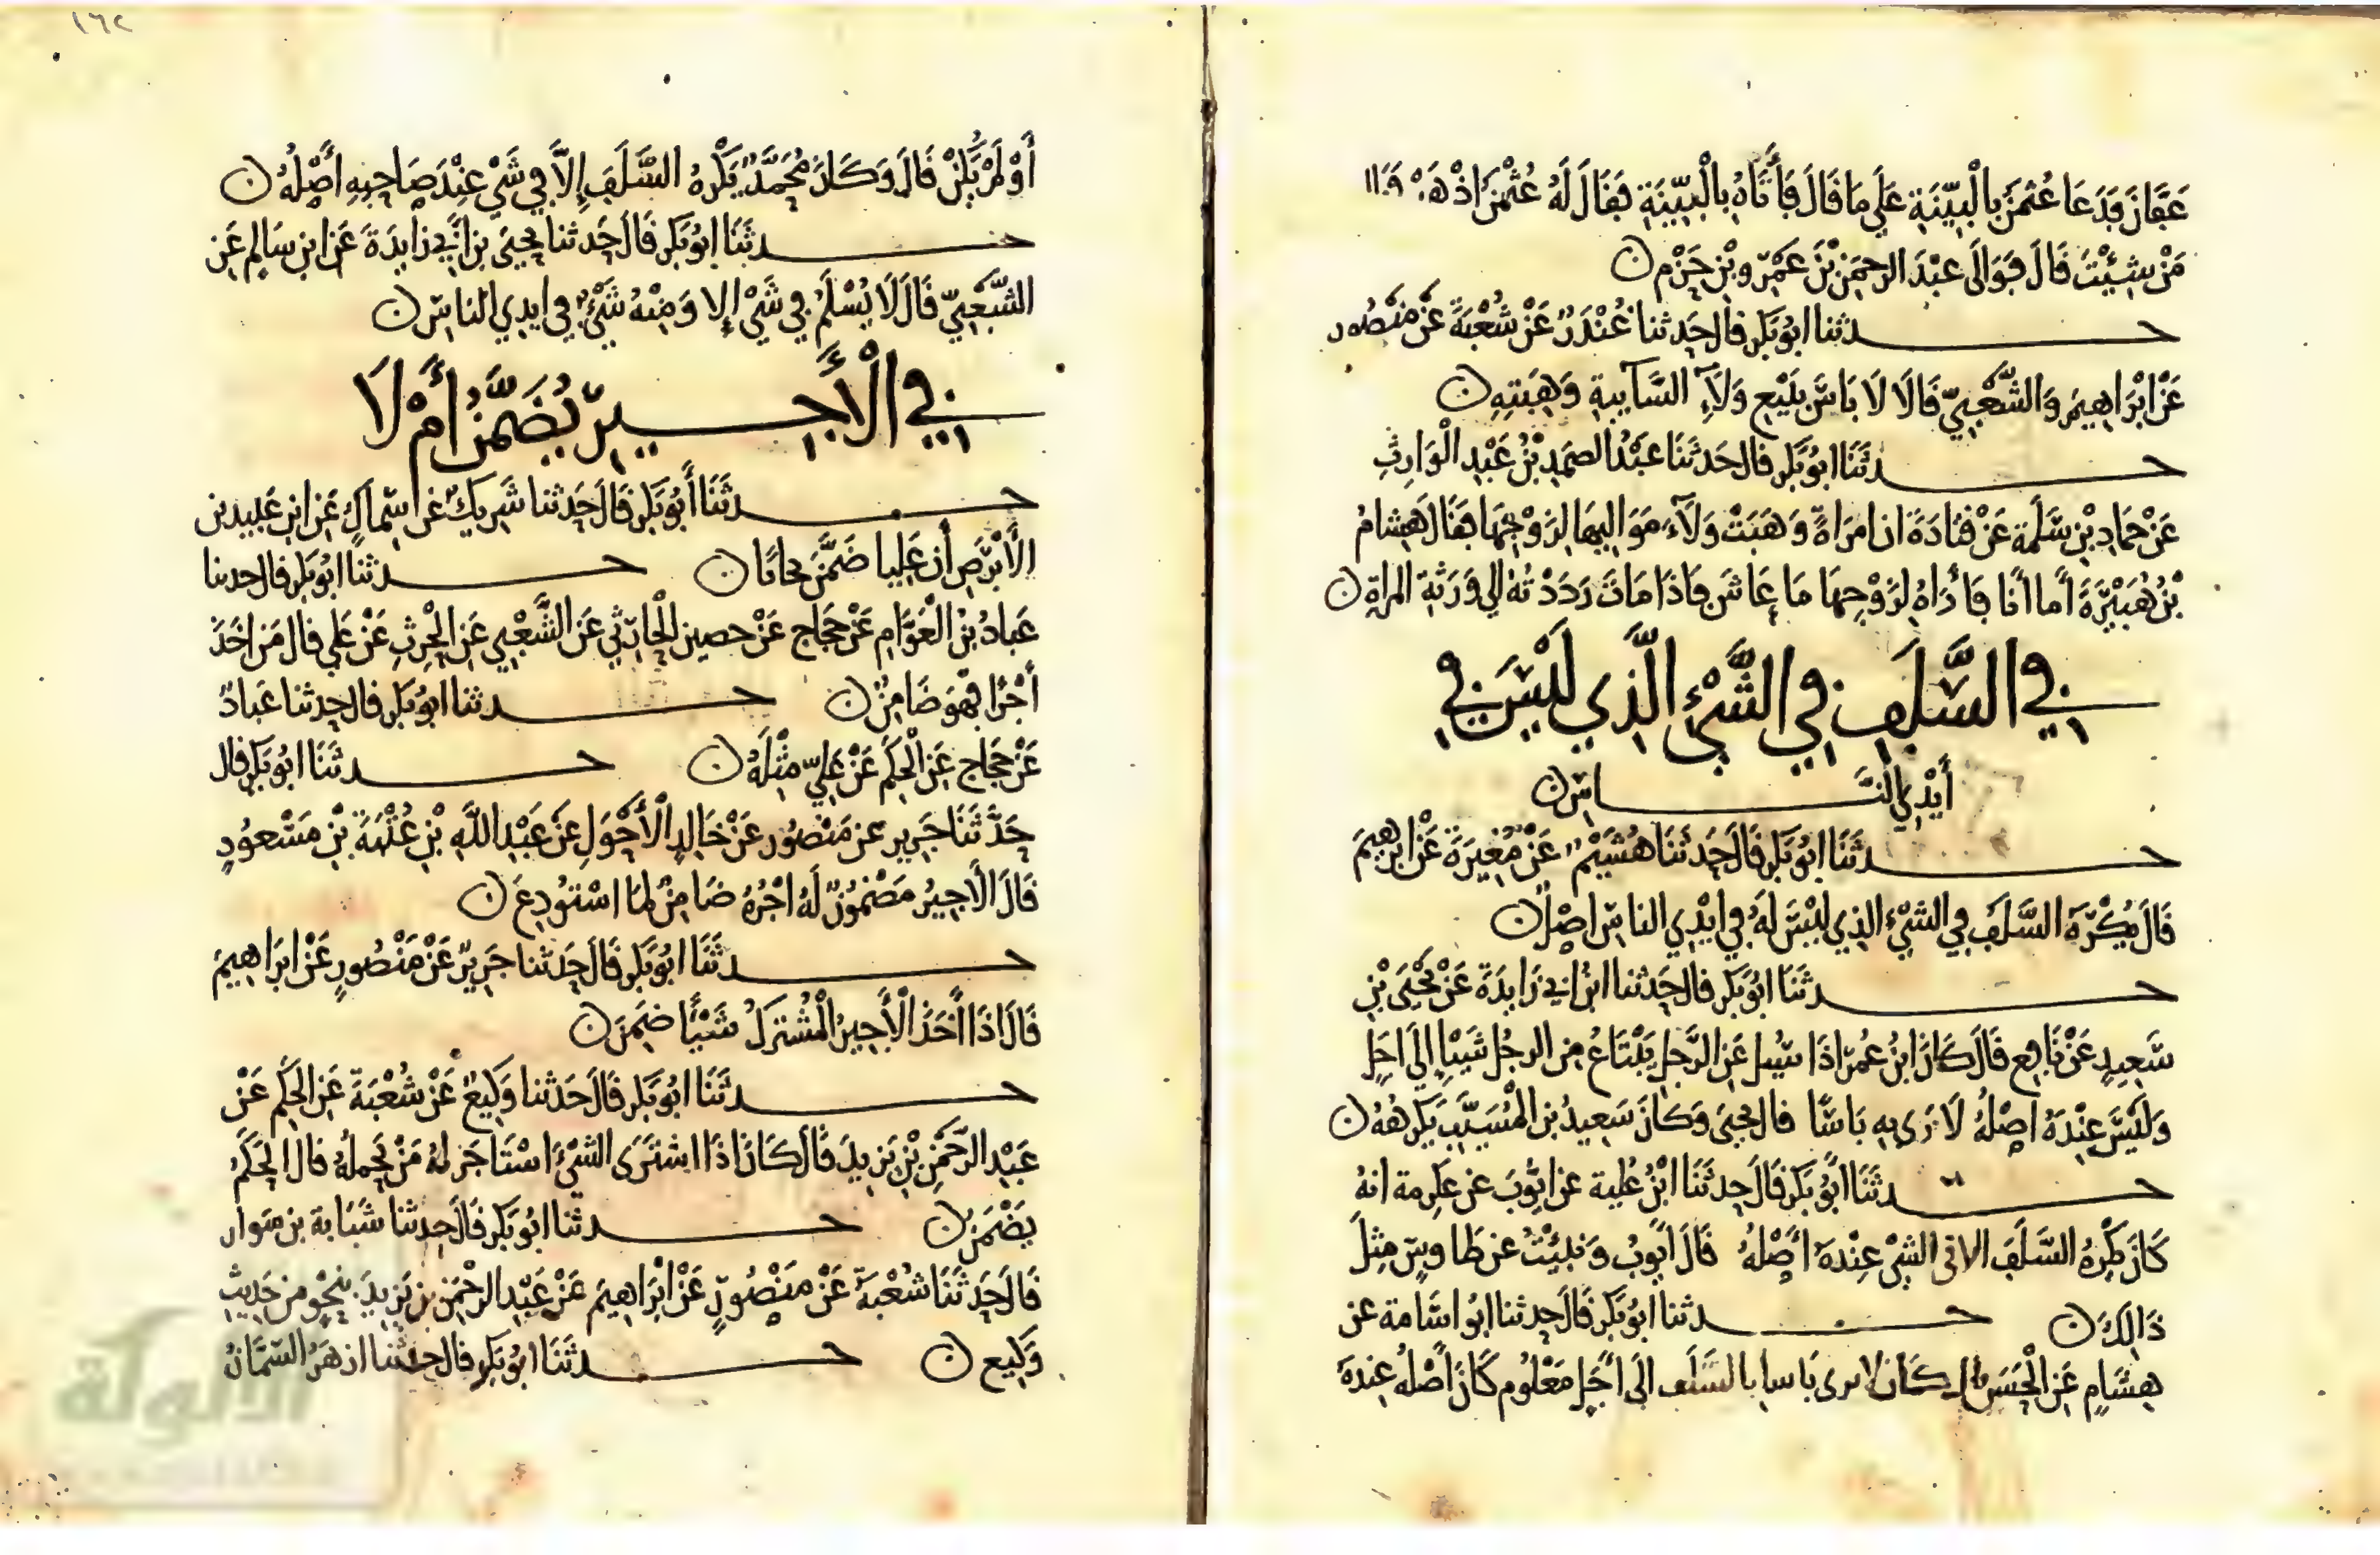 عَفَّانَ فَدَعَا عُثْمَنَ بِالْبَيِّنَةِ عَلَى مَا قَالَ فَأَتَاهُ بِالْبَيِّنَةِ فَقَالَ لَهُ عُثْمَنُ اذْهَبْ
مَنْ شِئْتَ قَالَ فَوَالَى عَبْدَ الرحمَنِ بْنَ عَمْرِو بْنِ حَزْمٍ ن
حدثنا ابُو بَكرٍ قال حَدثنا غُنْدَرٌ عَنْ شُعْبَةَ عَنْ مَنْصُور
عَنْ ابْرَاهِيمَ وَالشَّعْبِيِّ قَالَا لَا بَاسَ بِبَيْعِ وَلَآءِ السَّآيِبةِ وَهِبَتِهِ ن
حدثَنَا ابُو بَكرٍ قال حَدثَنَا عَبْدُ الصمَدِ بْنُ عَبْدِ الْوَارِثِ
عَنْ حَمادِ بْنِ سَلَمةَ عَنْ قتَادَةَ ان امرَاةً وَهَبَتْ وَلَآءَ مَوَالِيهَا لِزَوْجِهَا فقَالَ هِشامُ
بْنُ هُبَيْرَةَ أَما أَنَا فَأرَاهُ لِزَوْجِهَا مَا عَاشَ فَاذَا مَاتَ رَدَدْتُهُ الى وَرَثَةِ المراةِ ن
في السَّلَفِ في الشَّيْءِ الَّذِي لَيْسَ في
أَيْدِي النَّاسِ ن
حدثَنَا ابُو بَكرٍ قَالَ حَدثَنَا هُشَيْمٌ عَنْ مُغِيرَةَ عَنْ ابرهِيمَ
قَالَ يُكْرَهُ السَّلَفُ في الشيْءِ الذِي لَيْسَ لَهُ في ايْدِي الناسِ اصْلٌ ن
حدثَنَا ابُو بَكرٍ قال حَدثنا ابْنُ ابي زَايِدَةَ عَنْ يَحْيَى بْنِ
سَعِيدٍ عَنْ نَافِعٍ قَالَ كَانَ ابْنُ عُمَرَ اذَا سُيِلَ عَنِ الرَّجُلِ يَبْتَاعُ مِنَ الرجُلِ شَيْيا إِلَى اجَلٍ
وَلَيْسَ عِنْدَهُ اصْلُهُ لَا يَرَى بِهِ بَاسًا قال يحيَى وَكَانَ سَعِيدُ بن الْمُسَيَّبِ يَكرَهُهُ ن
حدثَنَا أَبُو بَكرٍ قَالَ حَدثَنَا ابْنُ عُلَيةَ عن ايُّوبَ عن عِكرِمة انهُ
كَانَ يَكْرَهُ السَّلَفَ الا في الشَيْ عِنْدَهُ أَصْلُهُ قَالَ أَيُوبُ وَنُبِئْتُ عن طَاوسٍ مِثلَ
ذَالِكَ ن حدثنا ابُو بَكرٍ قَالَ حَدثنا ابُو اسَامة عن
هِشَامٍ عَنِ الْحَسَنِ قال كَانَ لا يرى بَاسا بالسَّلَف الَى أَجَلٍ مَعْلُومٍ كَانَ أَصْلُهُ عِندَهُ
١٦٢
أَوْ لَمْ يَكُنْ قَالَ وَكَانَ مُحَمَّدٌ يَكْرَهُ السَّلَفَ إِلاَّ في شَيْ عِنْدَ صَاحِبِهِ أَصْلُهُ ن
حدثَنَا ابُو بَكرٍ قَالَ حَدثنا يحيَى بن أَبي زايِدَةَ عَنِ ابنِ سَالِمٍ عَنِ
الشَّعْبِيِّ قَالَ لَا يُسْلَمُ في شَيْ إِلا وَمِنْهُ شَيْءٌ في ايدِي الناسِ ن
في الْأَجِيرِ يُضَمَّنُ أَمْ لَا
حدثَنَا أَبُو بَكرٍ قَالَ حَدثنا شَرِيكٌ عن سِمَاكٍ عَنِ ابنِ عَبِيد بن
الأَبْرَصِ أَن عَلِيا ضَمَّنَ نجارًا ن حدثنا ابُو بَكرٍ قال حدثنا
عَبادُ بْنُ الْعَوَّامِ عَنْ حَجاجٍ عَنْ حصينٍ الْحَارِثِي عَنِ الشَّعْبِي عَنِ الْحَرِثِ عَنْ عَلِي قال مَن اخَذَ
أَجْرًا فَهوَ ضَامِنٌ ن حدثنا ابُو بَكرٍ قال حَدثنا عَبادٌ
عَنْ حَجَّاجٍ عَنِ الْحَكَمِ عَنْ عَلِيٍّ مِثْلَهُ ن حدثَنَا ابُو بَكرٍ قال
حَدَّثَنَا جَرِير عن مَنْصُورٍ عَنْ خَالِدٍ الْأَحْوَلِ عَنْ عَبْدِ اللَّهِ بْنِ عُتْبَةَ بْنِ مَسْعُودٍ
قَالَ الأَجِيرُ مَضْمُونٌ لَهُ اجْرُهُ ضَامِنٌ لِمَا اسْتُودِعَ ن
حدثَنَا ابُو بَكرٍ قَالَ حَدثنا جَرِيرٌ عَنْ مَنْصُورٍ عَنْ ابرَاهِيمَ
قَالَ اذَا أَخَذَ الْأَجِيرُ الْمُشْتَرَكُ شَيْأً ضَمِنَ ن
حدثَنَا ابُو بَكرٍ قَالَ حَدثنا وَكِيعٌ عَنْ شُعْبَةَ عَنِ الحَكَمِ عَنْ
عَبْدِ الرَّحْمَنِ بْنِ يَزِيدَ قَالَ كَانَ اذَا اشتَرَى الشيْءَ اسْتَاجَرَ لهُ مَنْ يَحْمِلُهُ قال الحَكَمُ
يَضْمَنُ ن حدثنا ابُو بَكرٍ قَالَ حَدثنا شَبَابة بن سَوار
قَالَ حَدثَنَا شُعْبَةُ عَنْ مَنْصُورٍ عَنْ ابْرَاهِيمَ عَنْ عَبْدِ الرحْمَنِ بن يَزِيدَ بِنَحْوٍ من حَدِيثِ
وَكِيعٍ ن حدثَنَا ابُو بَكرٍ قال حدثنا ازهَرُ السَّمَّانُ
الألوكة